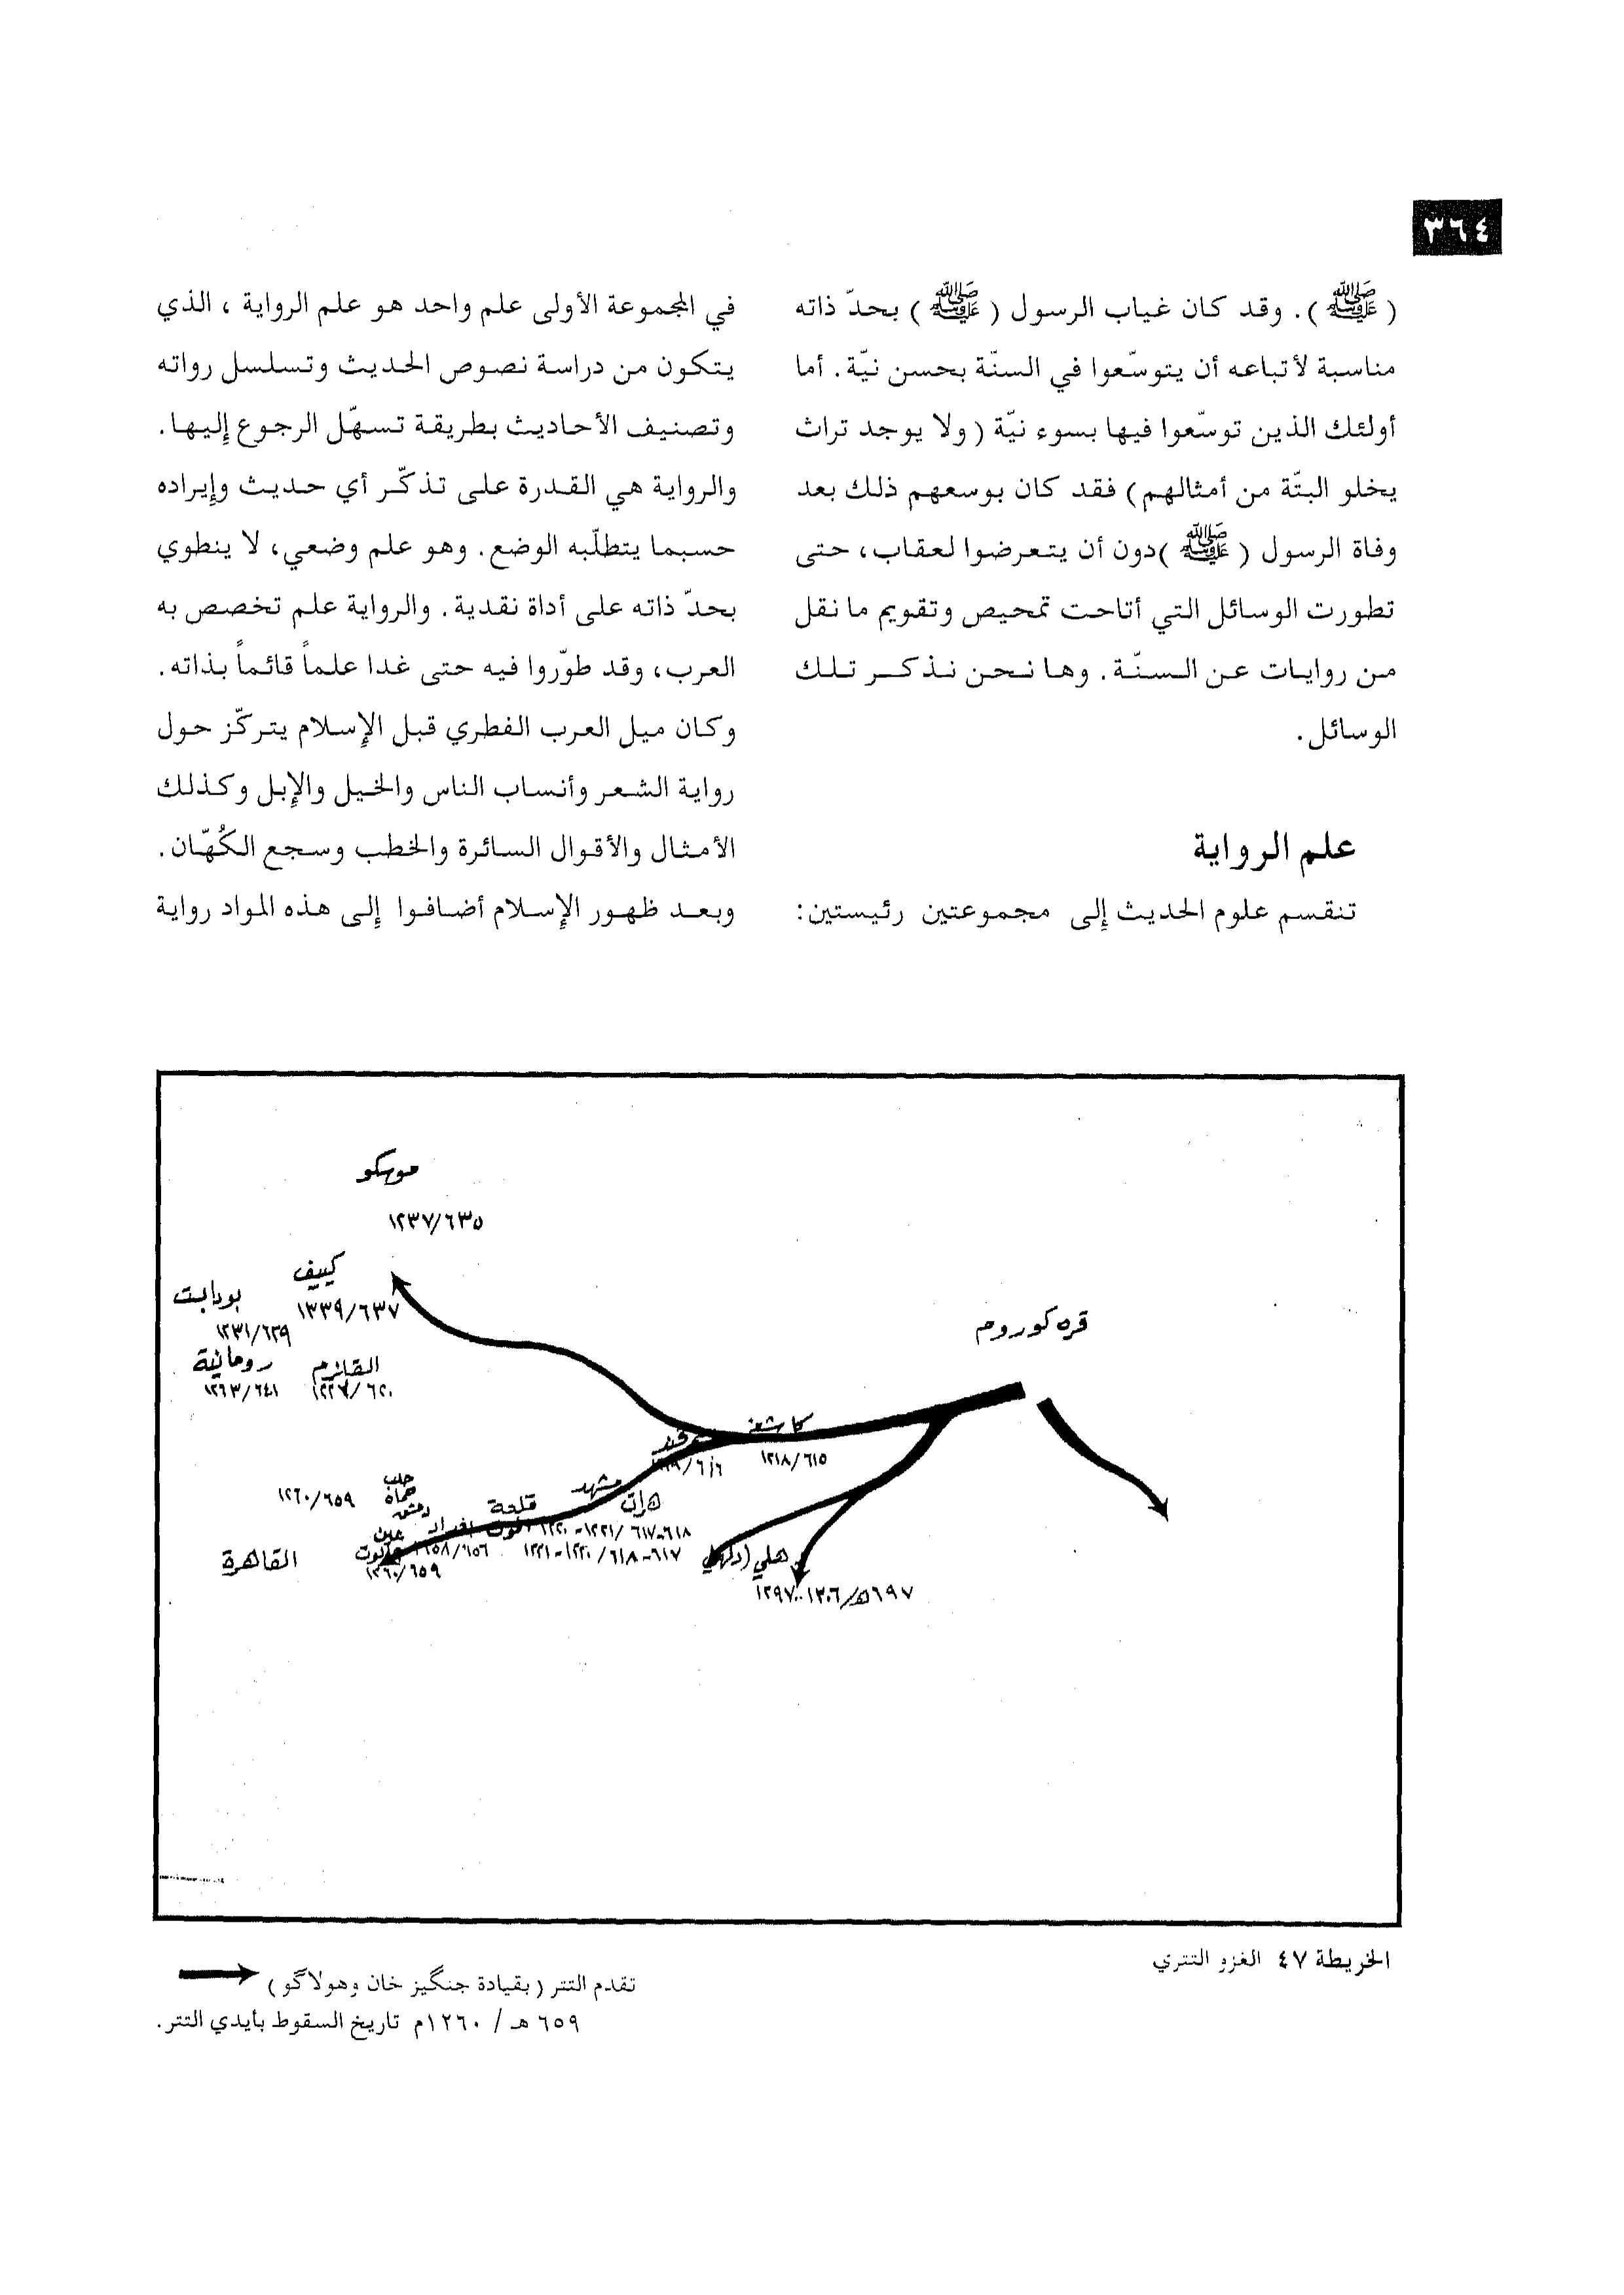 ٣٦٤
(ﷺ). وقد كان غياب الرسول (ﷺ) بحدّ ذاته
مناسبة لأتباعه أن يتوسّعوا في السنّة بحسن نيّة. أما
أولئك الذين توسّعوا فيها بسوء نيّة (ولا يوجد تراث
يخلو البتّة من أمثالهم) فقد كان بوسعهم ذلك بعد
وفاة الرسول (ﷺ) دون أن يتعرضوا لعقاب، حتى
تطورت الوسائل التي أتاحت تمحيص وتقويم ما نقل
من روايات عن السنّة. وها نحن نذكر تلك
الوسائل.
علم الرواية
تنقسم علوم الحديث إلى مجموعتين رئيستين:
في المجموعة الأولى علم واحد هو علم الرواية ، الذي
يتكون من دراسة نصوص الحديث وتسلسل رواته
وتصنيف الأحاديث بطريقة تسهّل الرجوع إليها.
والرواية هي القدرة على تذكّر أي حديث وإيراده
حسبما يتطلّبه الوضع. وهو علم وضعي، لا ينطوي
بحدّ ذاته على أداة نقدية. والرواية علم تخصص به
العرب، وقد طوّروا فيه حتى غدا علماً قائماً بذاته.
وكان ميل العرب الفطري قبل الإسلام يتركّز حول
رواية الشعر وأنساب الناس والخيل والإبل وكذلك
الأمثال والأقوال السائرة والخطب وسجع الكُهّان.
وبعد ظهور الإسلام أضافوا إلى هذه المواد رواية
موسكو
١٢٣٧/٦٣٥
كييف
١٣٣٩/٦٣٧
بودابست
١٢٣١/٦٣٩
رومانية
١٢٦٣/٦٤١
القلزم
قره كوروم
كاشغر
١٢١٨/٦١٥
مشهد
هرات
١٢٢٠-١٢٢١/ ٦١٧-٦١٨
١٢٢١-١٢٢٠/ ٦١٨-٦١٧
قلعة
حلب
حماة
دمشق
١٢٦٠/٦٥٩
عين
١٢٦٠/٦٥٩
القاهرة
الخريطة ٤٧ الغزو التتري
تقدم التتر (بقيادة جنگيز خان وهولاگو)
٦٥٩ هـ / ١٢٦٠م تاريخ السقوط بأيدي التتر.